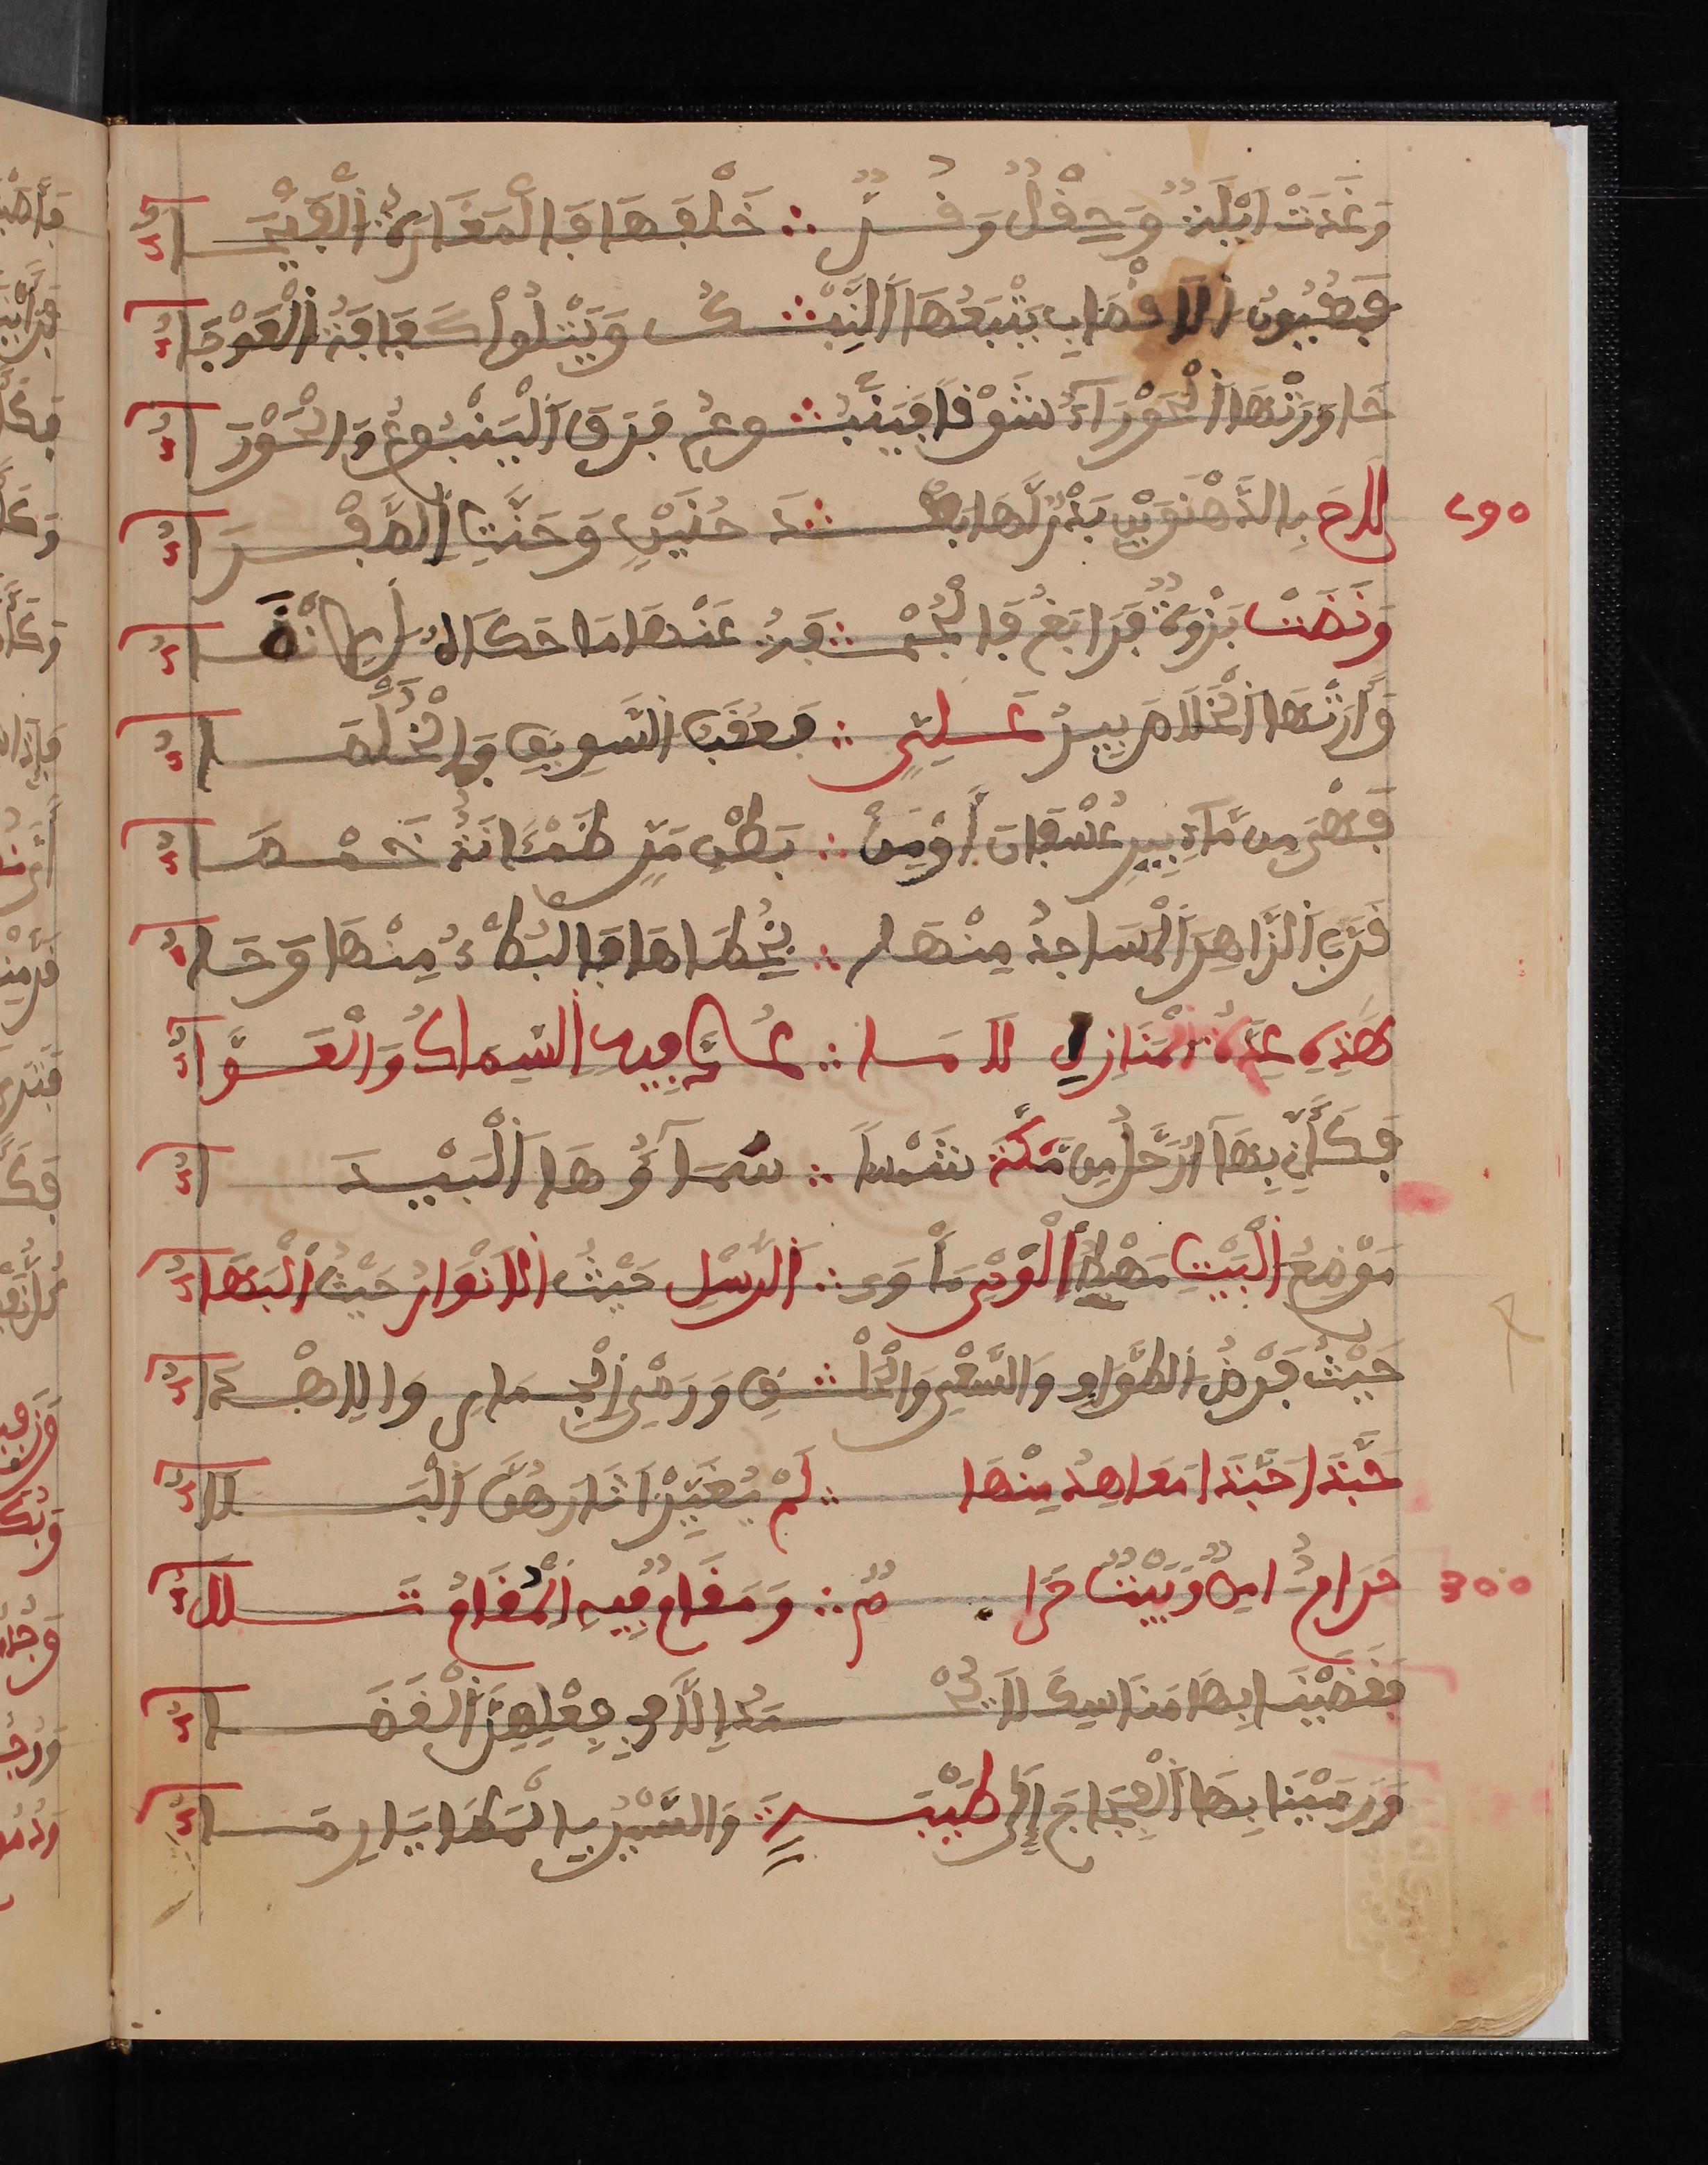 وَغَدَتْ اَيْلَةٌ وَحِقْلٌ وَقُرٌّ ∴ خَلْفَهَا فَالْمَغَارَةُ الْفَيْحَا
فَعُيُونُ الَاقْصَابِ يَتْبَعُهَا النَّبْ ∴ ـكُ وَيَتْلُواْ كَفَافَةُ الْعَوْجَا
حَاوَرَتْهَا الْحَوْرَآءُ شَوْقًا فَيَنْبُ ∴ ـوعٌ فَرَقَّ الْيَنْبُوعُ وَالْحَوْرَ ا
لَاحَ بِالدَّهْنَوَيْنِ بَدْرٌ لَّهَا بَعْـ ∴ ـدَ حُنَيْنٍ وَحَنَّتِ الصَّفْرَ ا
وَنَضَتْ بَزْوَةٌ فَرَابِغُ فَالْجُحْـ ∴ ـفَةُ عَنْهَا مَا حَاكَهُ الِانْضَا
وَأَرَتْهَا الْخَلَاصَ بِيرُ عَلِيٍّ ∴ فَعُقَابُ السَّوِيقِ فَالْخُلَصَا
فَهْىَ مِن مَّآءِ بِيرِ عُسْفَانَ أَوْ مِنْ ∴ بَطْنِ مَرٍّ ظَمْئَانَةٌ خَمْصَا
قَرَّبَ الزَّاهِرُ الْمَسَاجِدَ مِنْهَا ∴ بِخُطَاهَا فَالْبُطْءُ مِنْهَا وَحَا
هَذِهِ عِدَّةُ الْمَنَازِلِ لَا مَا ∴ عُدَّ فِيهِ السِّمَاكُ وَالْعَوَّا
فَكَأَنِّى بِهَا اُرَحِّلُ مِن مَّكَّةَ شَمْساً ∴ سَمَآؤُهَا الْبَيْدَ ا
مَوْضِعُ الْبَيْتِ مَهْبِطُ الْوَحْىِ مَأْوَى ∴ الرُّسْلِ حَيْثُ الَانْوَارُ حَيْثُ الْبَهَا
حَيْثُ فَرْضُ الطَّوَافِ وَالسَّعْىِ وَالْحَلْـ ∴ ـقِ وَرَمْىِ الْجِمَارِ وَالِاهْدَا
حَبَّذَا حَبَّذَا مَعَاهِدُ مِنْهَا ∴ لَمْ يُغَيِّرْ اَيَاتِهُنَّ الْبَلَا
حَرَامٌ اَمِنٌ وَبَيْتٌ حَرَا ∴ مٌ وَمَقَامٌ فِيهِ الْمُقَامُ تَلَا
فَقَضَيْنَا بِهَا مَنَاسِكَ لَا يُحْـ ∴ ـمَدُ إِلَّا فِى فِعْلِهِنَّ الْقَضَا
وَرَمَيْنَا بِهَا الْفِجَاجَ إِلَى طَيْبَـ ∴ ـةَ وَالسَّيْرُ بِالْمَطَايَا رِمَا
٢٩٠
٣٠٠